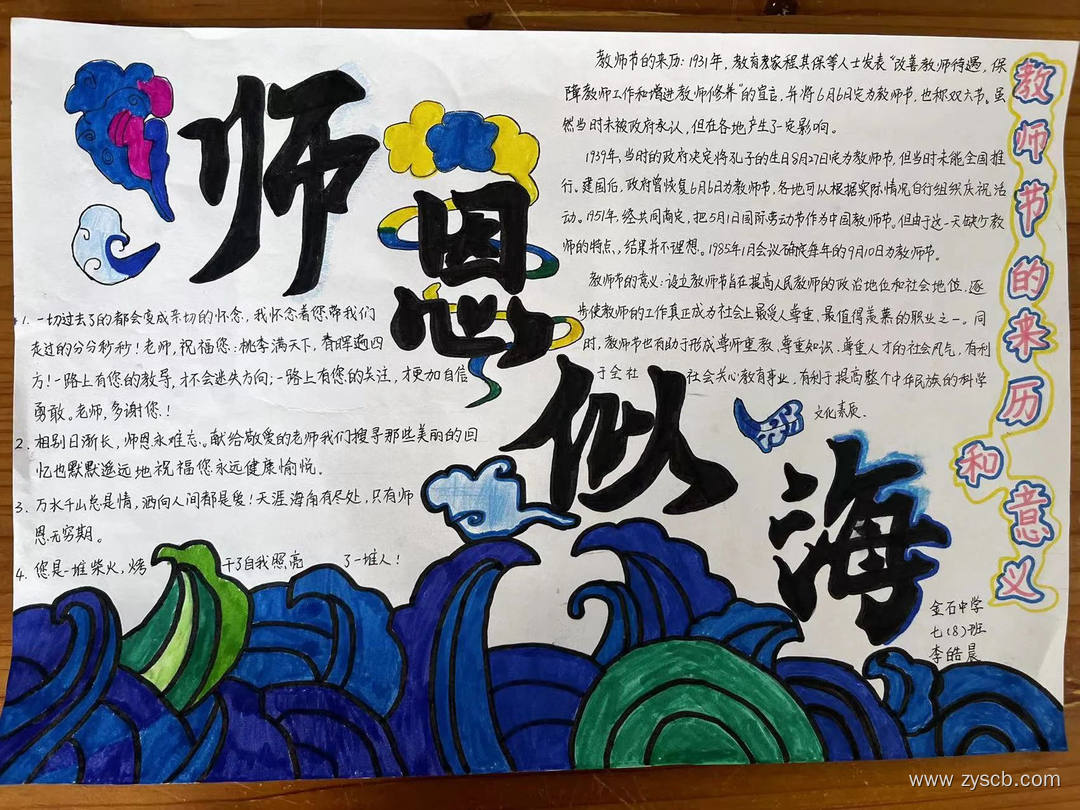 师恩似海
教师节的来历和意义
教师节的来历:1931年,教育家程其保等人士发表"改善教师待遇,保
障教师工作和增进教师修养"的宣言,并将6月6日定为教师节,也称双六节。虽
然当时未被政府承认,但在各地产生了一定影响。
1939年,当时的政府决定将孔子的生日8月27日定为教师节,但当时未能全国推
行。建国后,政府曾恢复6月6日为教师节,各地可以根据实际情况自行组织庆祝活
动。1951年,经共同商定,把5月1日国际劳动节作为中国教师节。但由于这一天缺少教
师的特点,结果并不理想。1985年1月会议确定每年的9月10日为教师节。
教师节的意义:设立教师节旨在提高人民教师的政治地位和社会地位,逐
步使教师的工作真正成为社会上最受人尊重、最值得羡慕的职业之一。同
时,教师节也有助于形成尊师重教、尊重知识、尊重人才的社会风气,有利
于全社 社会关心教育事业,有利于提高整个中华民族的科学
文化素质.
1. 一切过去了的都会变成亲切的怀念,我怀念着您带我们
走过的分分秒秒!老师,祝福您:桃李满天下,春晖遍四
方!一路上有您的教导,才不会迷失方向;一路上有您的关注,才更加自信
勇敢。老师,多谢您!
2. 相别日渐长,师恩永难忘。献给敬爱的老师我们搜寻那些美丽的回
忆也默默遥远地祝福您永远健康愉悦。
3. 万水千山总是情,洒向人间都是爱!天涯海角有尽处,只有师
恩无穷期。
4. 您是一堆柴火,烤 干了自我照亮 了一堆人!
金石中学
七(8)班
李皓晨
www.zyscb.com